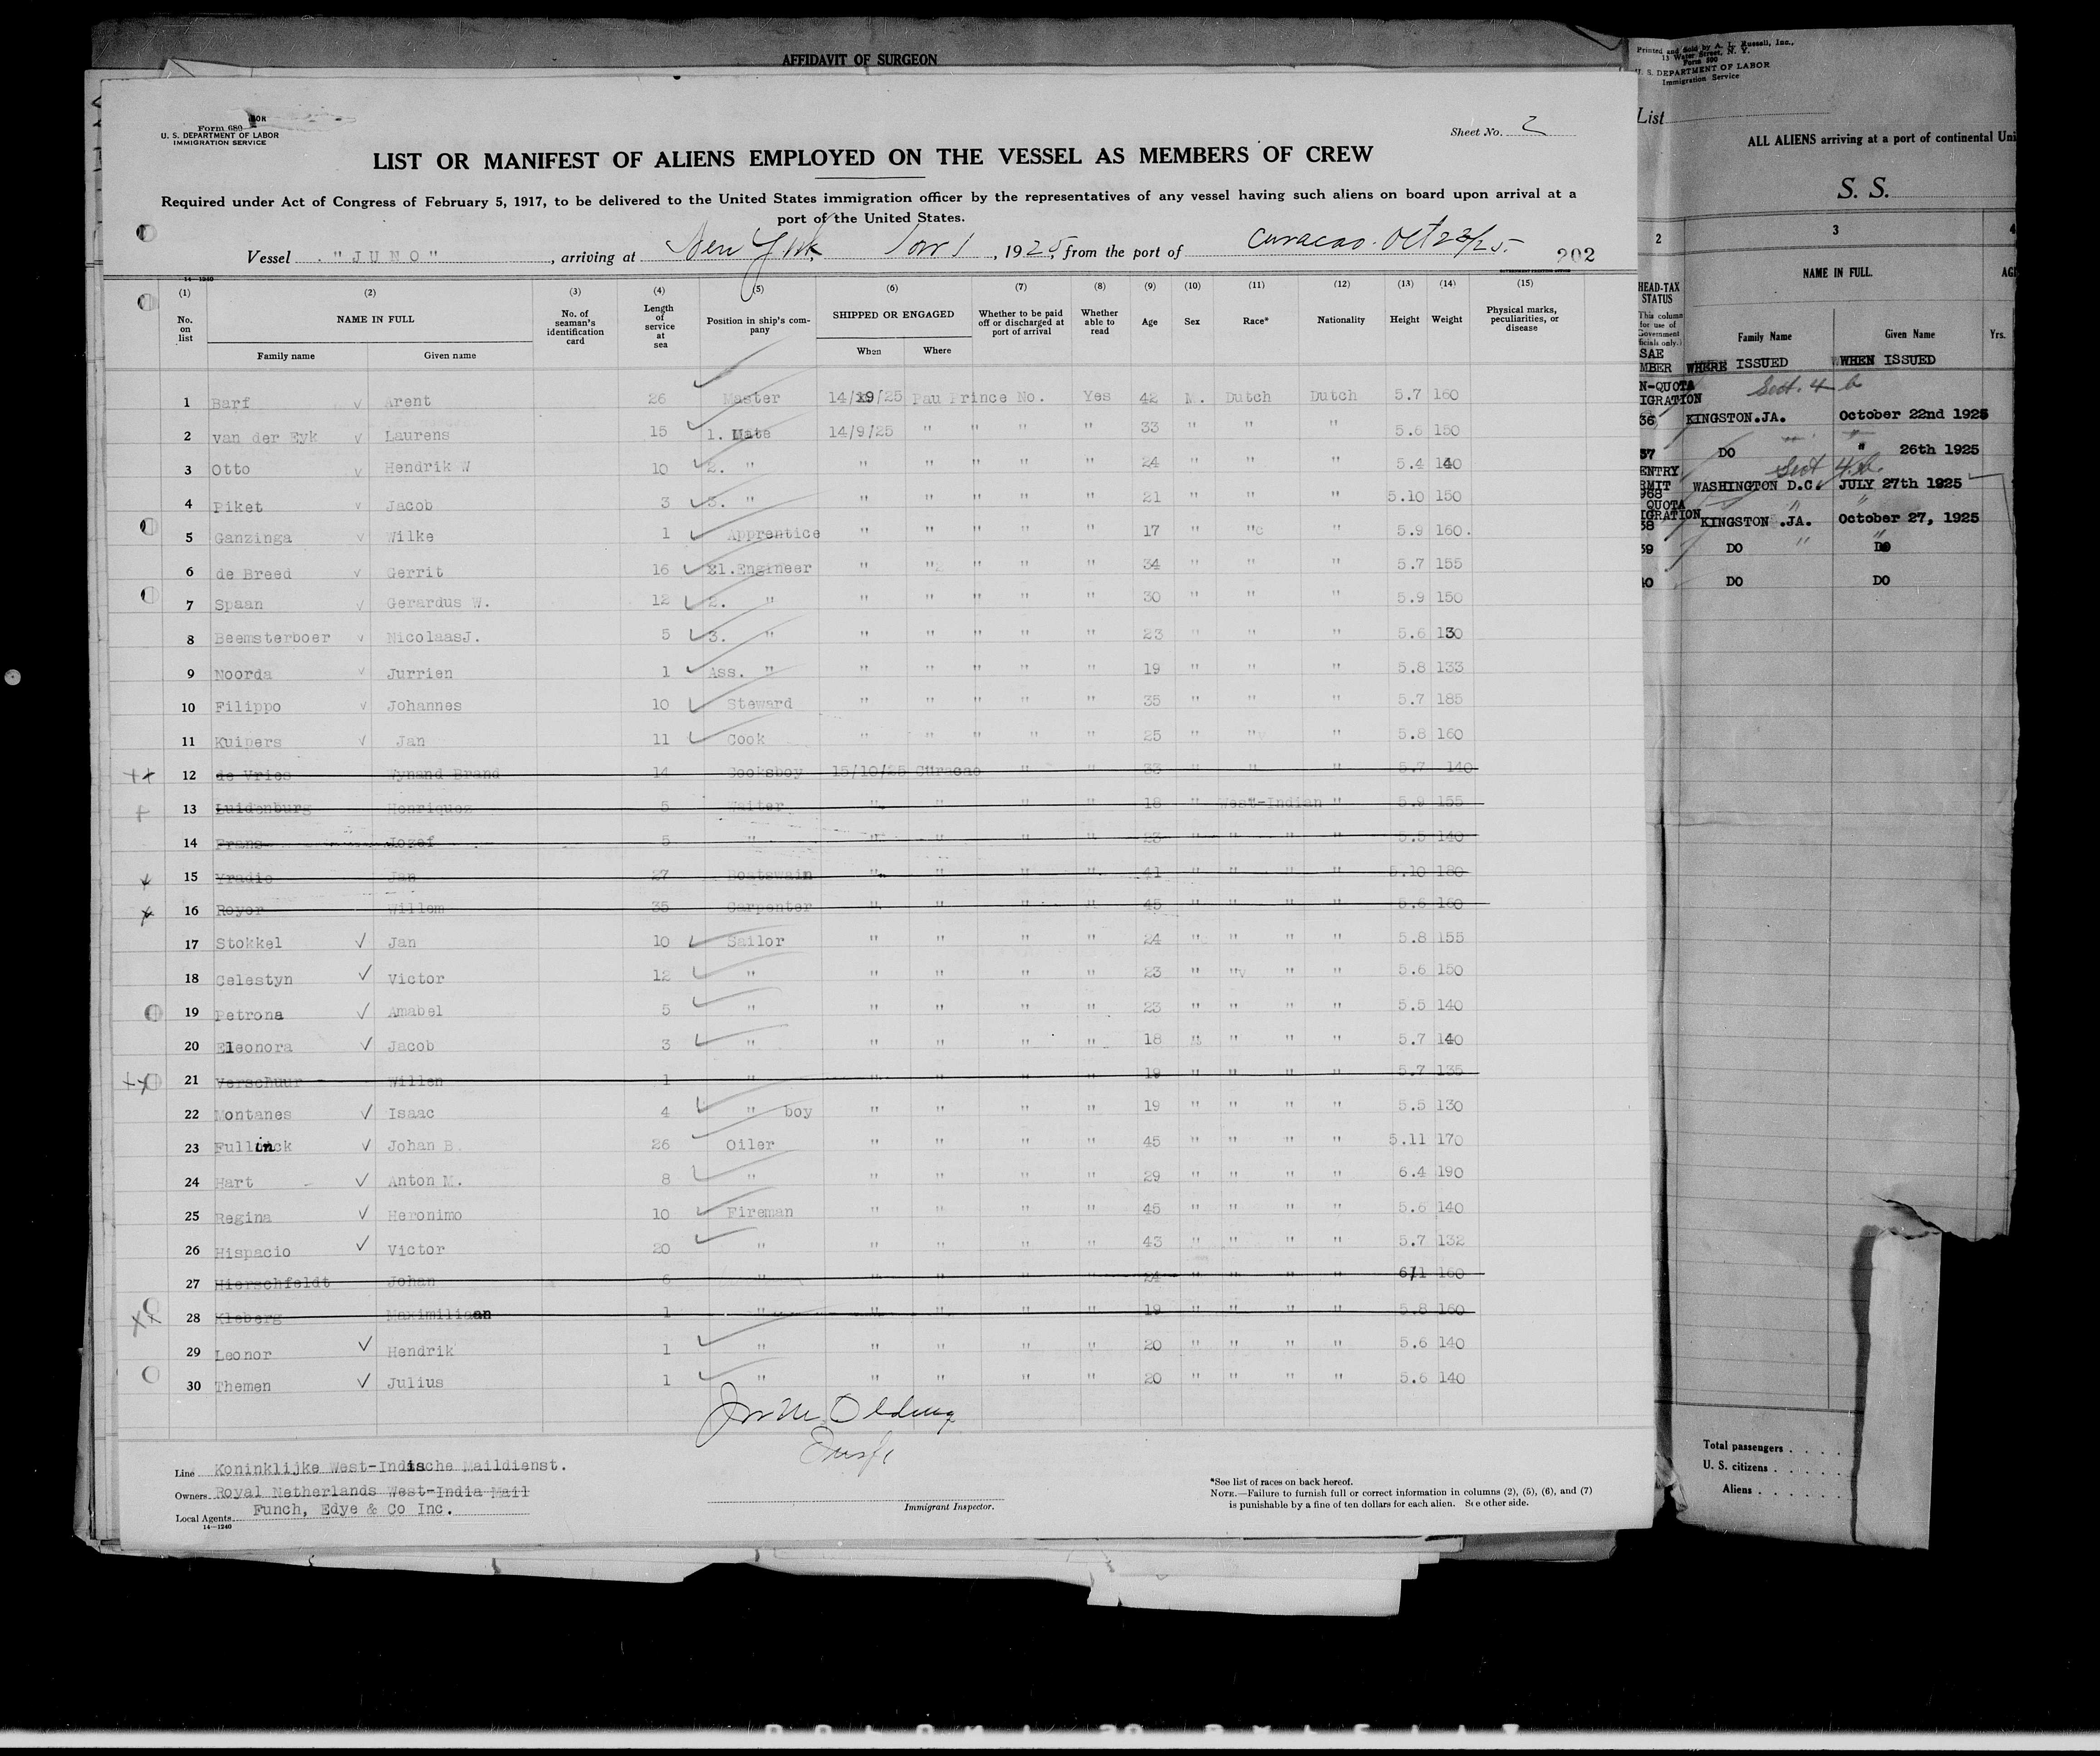 AFFIDAVIT OF SURGEON
Form 680
U. S. DEPARTMENT OF LABOR
IMMIGRATION SERVICE
Sheet No. 2
LIST OR MANIFEST OF ALIENS EMPLOYED ON THE VESSEL AS MEMBERS OF CREW
Required under Act of Congress of February 5, 1917, to be delivered to the United States immigration officer by the representatives of any vessel having such aliens on board upon arrival at a
port of the United States.
Vessel "JUNO", arriving at New York Nov 1, 1925, from the port of Curacao Oct 23/25. 202
14—1240
(1) (2) (3) (4) (5) (6) (7) (8) (9) (10) (11) (12) (13) (14) (15)
No. on list NAME IN FULL Family name Given name No. of seaman's identification card Length of service at sea Position in ship's company SHIPPED OR ENGAGED When Where Whether to be paid off or discharged at port of arrival Whether able to read Age Sex Race* Nationality Height Weight Physical marks, peculiarities, or disease
1 Barf Arent 26 Master 14/9/25 Pau Prince No. Yes 42 M. Dutch Dutch 5.7 160
2 van der Eyk Laurens 15 1. Mate 14/9/25 " " " " 33 " " " 5.6 150
3 Otto Hendrik W 10 2. " " " " " " 24 " " " 5.4 140
4 Piket Jacob 3 3. " " " " " " 21 " " " 5.10 150
5 Ganzinga Wilke 1 Apprentice " " " " " 17 " "c " 5.9 160.
6 de Breed Gerrit 16 1.Engineer " " " " " 34 " " " 5.7 155
7 Spaan Gerardus W. 12 2. " " " " " " 30 " " " 5.9 150
8 Beemsterboer NicolaasJ. 5 3. " " " " " " 23 " " " 5.6 130
9 Noorda Jurrien 1 Ass. " " " " " " 19 " " " 5.8 133
10 Filippo Johannes 10 Steward " " " " " 35 " " " 5.7 185
11 Kuipers Jan 11 Cook " " " " " 25 " " " 5.8 160
12 de Vries Wynand Brand 14 Cooksboy 15/10/25 Curacao " " 33 " " " 5.7 140
13 Luidenburg Henriquez 5 Waiter " " " " 18 " West-Indian " 5.9 155
14 Frans Jozef 5 " " " " " 23 " " " " 5.5 140
15 Vradie Jan 27 Boatswain " " " " 41 " " " " 5.10 180
16 Royer Willem 35 Carpenter " " " " 45 " " " " 5.6 160
17 Stokkel Jan 10 Sailor " " " " 24 " " " " 5.8 155
18 Celestyn Victor 12 " " " " " 23 " " " " 5.6 150
19 Petrona Amabel 5 " " " " " 23 " " " " 5.5 140
20 Eleonora Jacob 3 " " " " " 18 " " " " 5.7 140
21 Verschuur Willem 1 " " " " " 19 " " " " 5.7 135
22 Montanes Isaac 4 " boy " " " " 19 " " " " 5.5 130
23 Fullinck Johan B. 26 Oiler " " " " 45 " " " " 5.11 170
24 Hart Anton M. 8 " " " " " 29 " " " " 6.4 190
25 Regina Heronimo 10 Fireman " " " " 45 " " " " 5.6 140
26 Hispacio Victor 20 " " " " " 43 " " " " 5.7 132
27 Hierschfeldt Johan 6 " " " " " 24 " " " " 6/1 160
28 Kleberg Maximiliaan 1 " " " " " 19 " " " " 5.8 160
29 Leonor Hendrik 1 " " " " " 20 " " " " 5.6 140
30 Themen Julius 1 " " " " " 20 " " " " 5.6 140
Line Koninklijke West-Indische Maildienst.
Owners Royal Netherlands West-India Mail
Local Agents Funch, Edye & Co Inc.
14—1240
Immigrant Inspector.
*See list of races on back hereof.
NOTE.—Failure to furnish full or correct information in columns (2), (5), (6), and (7)
is punishable by a fine of ten dollars for each alien. See other side.
Printed and Sold by A. L. Russell, Inc.,
13 Water Street, N. Y.
Form 500
U. S. DEPARTMENT OF LABOR
Immigration Service
List
ALL ALIENS arriving at a port of continental Uni
S. S.
2 3 4
HEAD-TAX STATUS
This column for use of Government officials only.)
NAME IN FULL.
AG
Family Name Given Name Yrs.
WHERE ISSUED WHEN ISSUED
Sect. 4 b
36 KINGSTON.JA. October 22nd 1925
37 DO " 26th 1925
Sect 4.b.
WASHINGTON D.C. JULY 27th 1925
38 KINGSTON .JA. October 27, 1925
39 DO DO
40 DO DO
Total passengers
U. S. citizens
Aliens